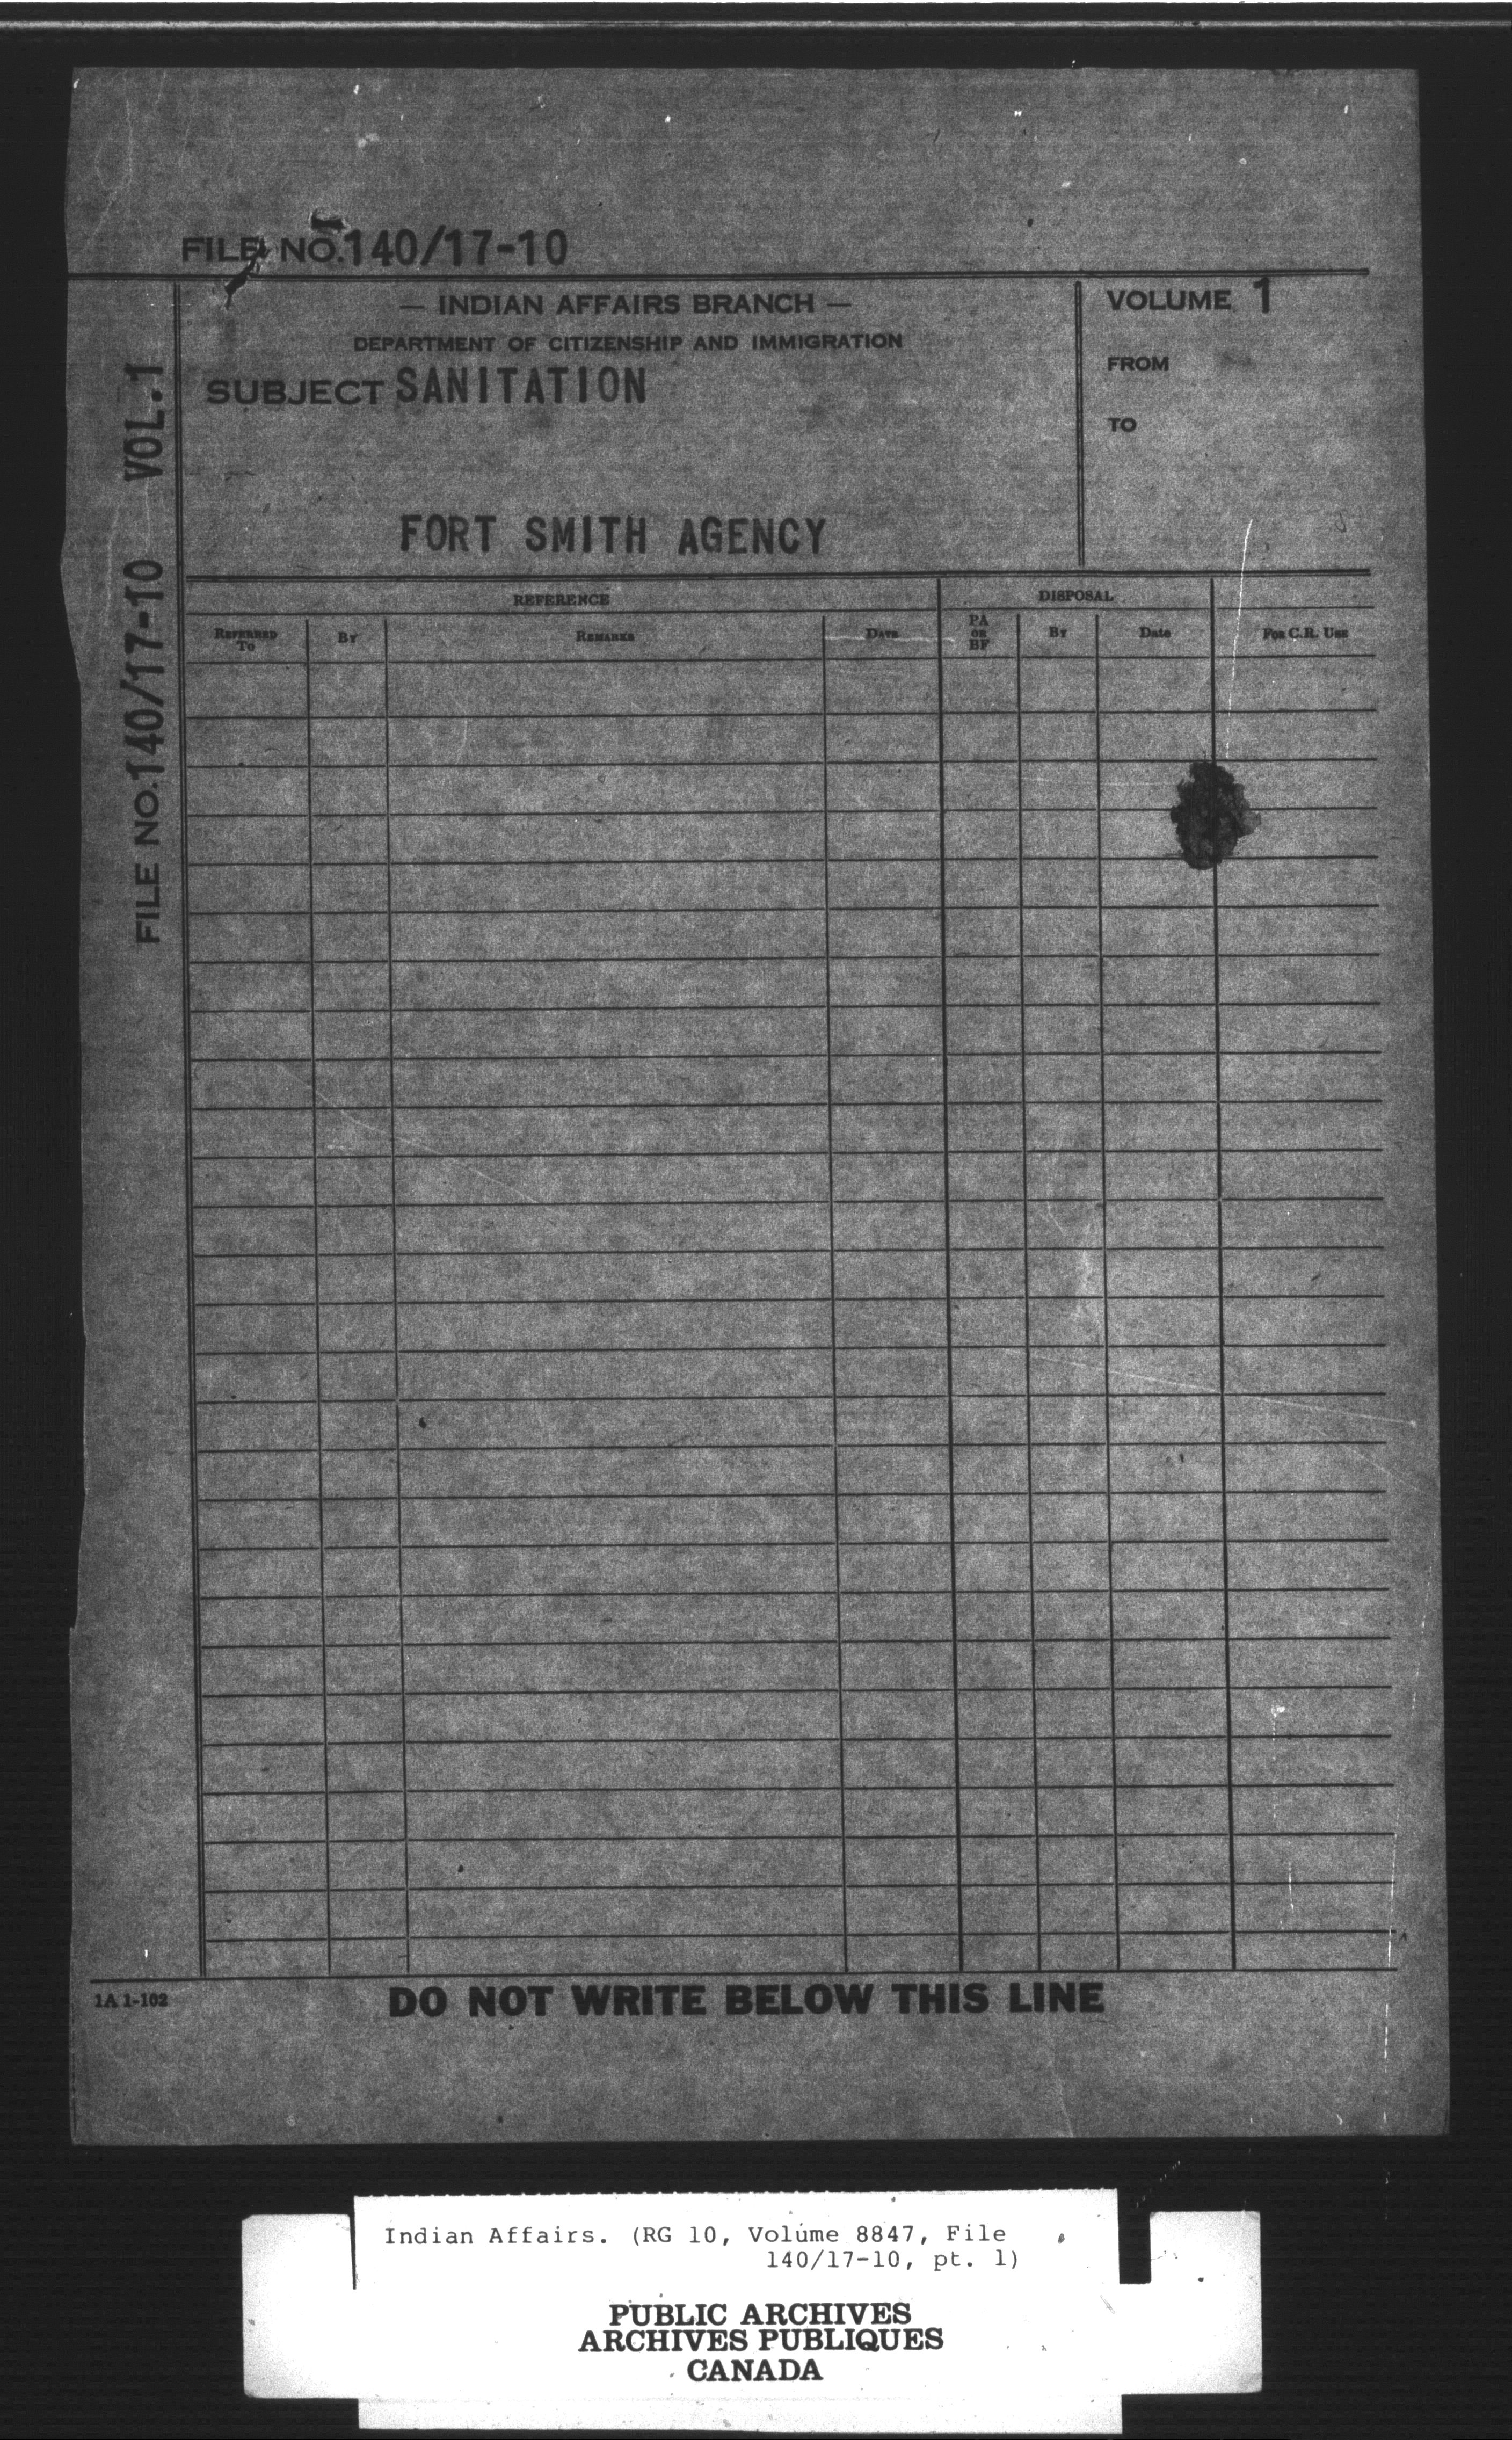 FILE NO. 140/17-10
— INDIAN AFFAIRS BRANCH —
DEPARTMENT OF CITIZENSHIP AND IMMIGRATION
SUBJECT SANITATION
FORT SMITH AGENCY
VOLUME 1
FROM
TO
FILE NO. 140/17-10 VOL. 1
REFERENCE
DISPOSAL
REFERRED
TO
BY
REMARKS
DATE
PA
OR
BF
By
Date
FOR C.R. USE
1A 1-102
DO NOT WRITE BELOW THIS LINE
Indian Affairs. (RG 10, Volume 8847, File
140/17-10, pt. 1)
PUBLIC ARCHIVES
ARCHIVES PUBLIQUES
CANADA